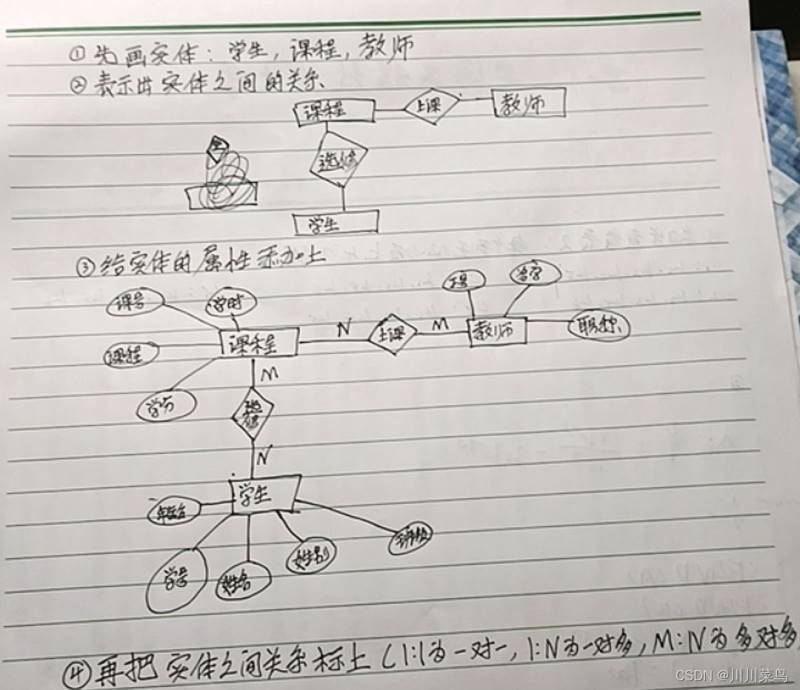 ①先画实体：学生，课程，教师
②表示出实体之间的关系
课程 上课 教师
选修
学生
③给实体的属性添加上
课号 学时 工号 名字
课程 课程 N 上课 M 教师 职称
学分 M
选修
N
学生
年龄
学号 姓名 性别 班级
④再把实体之间关系标上(1:1为一对一，1:N为一对多，M:N为多对多
CSDN @川川菜鸟